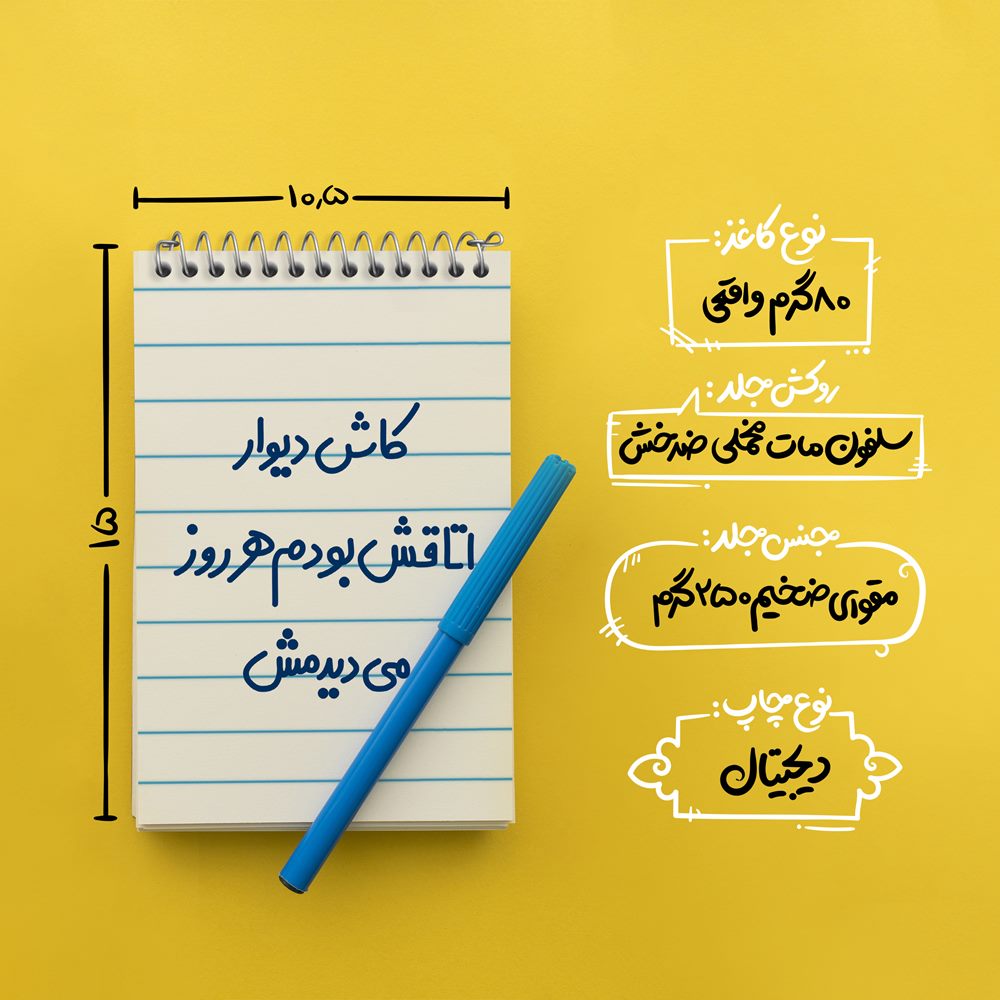 ۱۰٫۵
۱۵
کاش دیوار
اتاقش بودم هر روز
می دیدمش
نوع کاغذ:
۸۰ گرم واقعی
روکش جلد:
سلفون مات مخملی ضدخش
جنس جلد:
مقوای ضخیم ۲۵۰ گرم
نوع چاپ:
دیجیتال